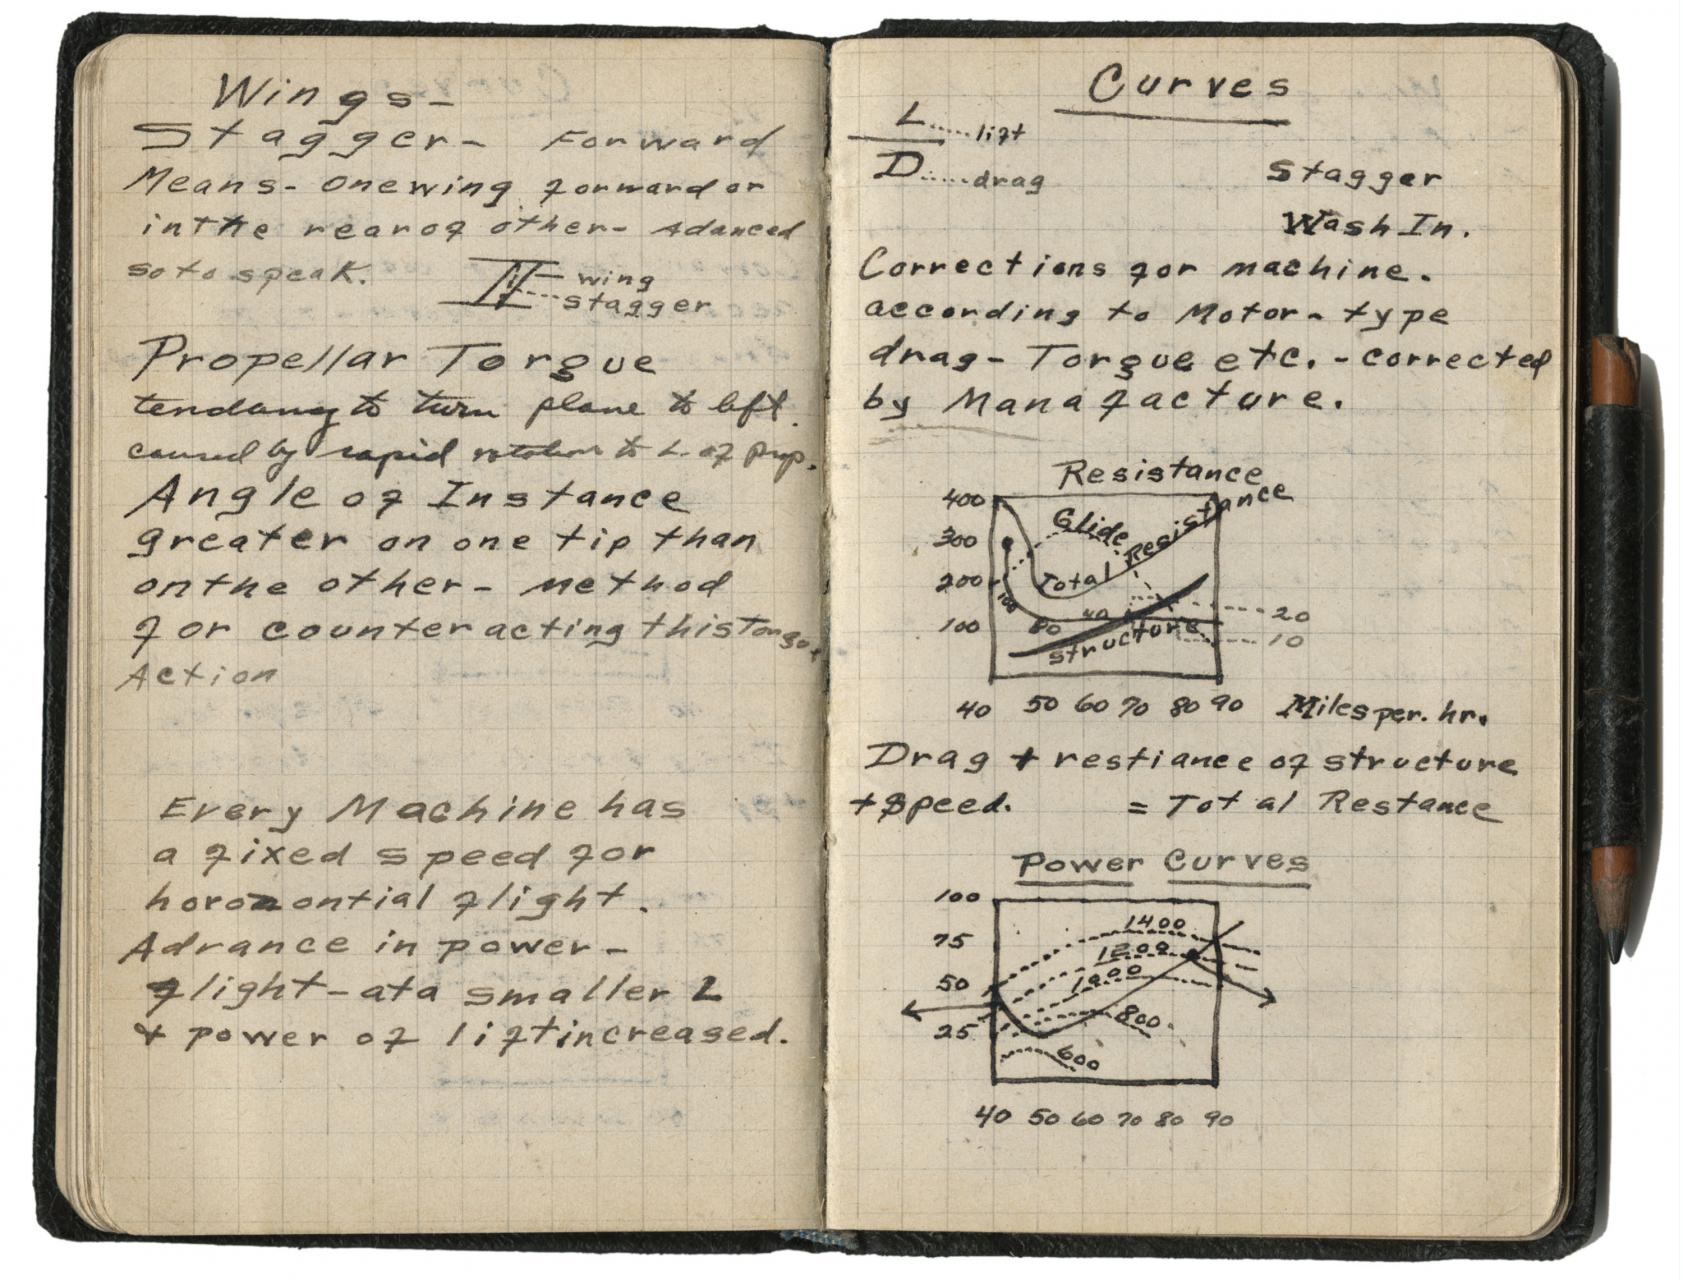 Wings-
Stagger- Forward
Means- one wing forward or
in the rear of other- Adanced
so to speak.
wing
stagger
Propellar Torgue
tendancy to turn plane to left.
caused by rapid rotation to L. of prop.
Angle of Instance
greater on one tip than
on the other- Method
for counteracting this
Action
Every Machine has
a fixed speed for
horozontial flight.
Advance in power-
flight-at a smaller L
+ power of lift increased.
Curves
L.....lift
D.....drag
Stagger
Wash In.
Corrections for machine.
according to Motor- type
drag- Torgue etc. - corrected
by Manafacture.
Resistance
400
300
200
100
Glide
Total Resistance
100
80
40
structure
20
10
40 50 60 70 80 90 Miles per. hr.
Drag + restiance of structure
+ Speed. = Total Restance
Power Curves
100
75
50
25
1400
1200
1000
800.
600
40 50 60 70 80 90